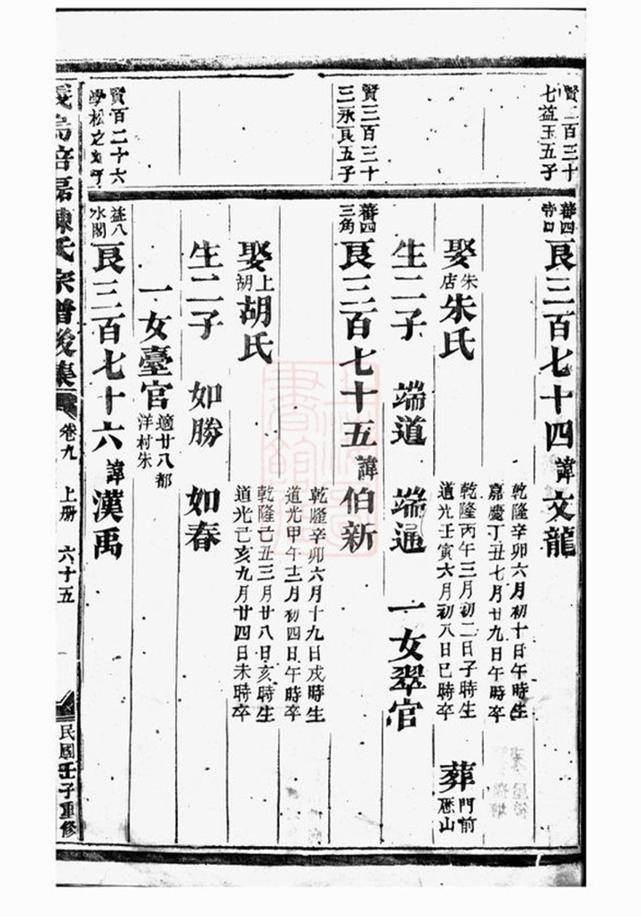 賢二百三十
七益玉五子
蕃四
良三百七十四 諱文龍
乾隆辛卯六月初十日午時生
嘉慶丁丑七月廿九日午時卒
娶朱店朱氏
乾隆丙午三月初二日子時生
道光壬寅六月初八日巳時卒
葬門前
山
生二子 端道 端通 一女翠官
賢三百三十
三永良五子
蕃四
三角
良三百七十五 諱伯新
乾隆辛卯六月十九日戌時生
道光甲午十二月初四日午時卒
娶上胡胡氏
乾隆己丑三月廿八日亥時生
道光己亥九月廿四日未時卒
生二子 如勝 如春
一女臺官適廿八都
洋村朱
賢百二十六
學松之
益八
水閣
良三百七十六 諱漢禹
義烏倍磊陳氏宗譜後集 卷九 上册 六十五
民國壬子重修